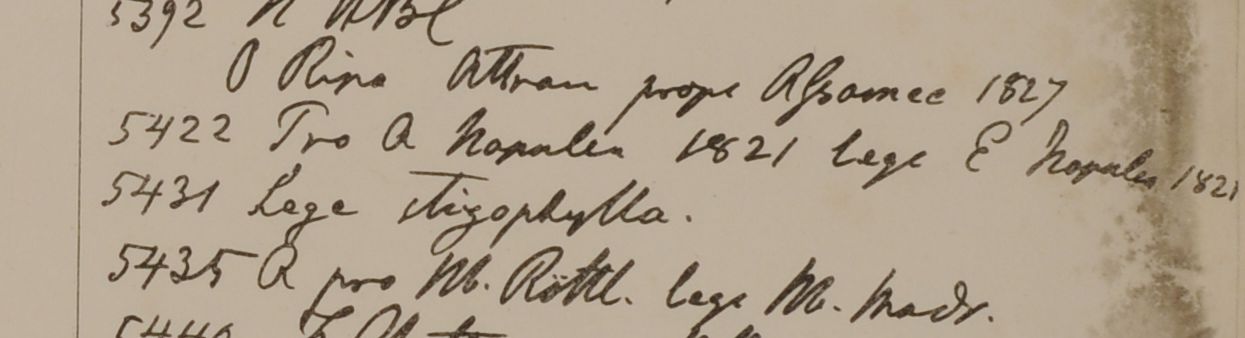 5392 H HBC
O Ripa Attran prope Assamee 1827
5422 Pro A Napalea 1821 lege E Napalea 1821
5431 Lege stizophylla.
5435 A pro M. Röttl. lege M. Madr.
5440